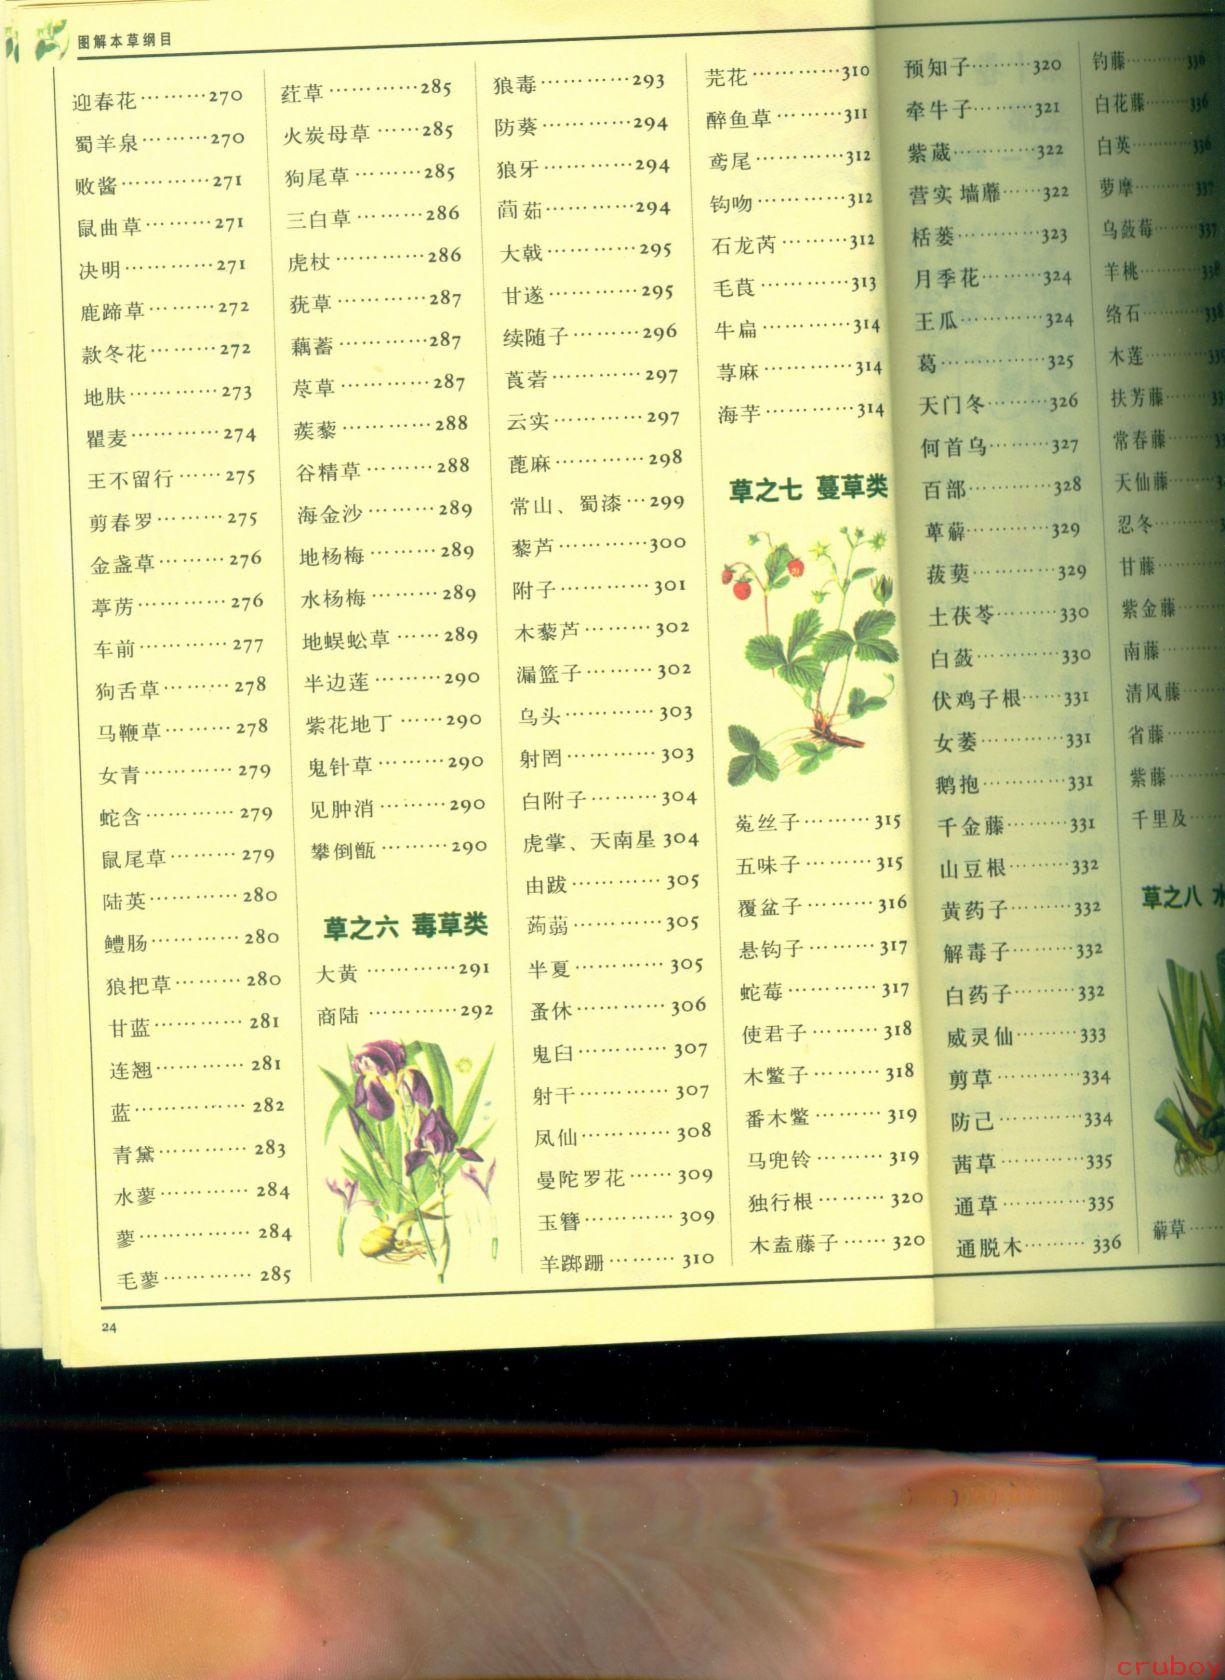 图解本草纲目
迎春花………270
蜀羊泉…………270
败酱…………271
鼠曲草…………271
决明…………271
鹿蹄草………272
款冬花………272
地肤…………273
瞿麦…………274
王不留行……275
剪春罗………275
金盏草………276
葶苈…………276
车前…………277
狗舌草………278
马鞭草………278
女青…………279
蛇含…………279
鼠尾草………279
陆英…………280
鳢肠…………280
狼把草………280
甘蓝…………281
连翘…………281
蓝……………282
青黛…………283
水蓼…………284
蓼……………284
毛蓼…………285
荭草…………285
火炭母草……285
狗尾草………285
三白草………286
虎杖…………286
莸草…………287
藕蓄…………287
荩草…………287
蒺藜…………288
谷精草………288
海金沙………289
地杨梅………289
水杨梅………289
地蜈蚣草……289
半边莲………290
紫花地丁……290
鬼针草………290
见肿消………290
攀倒甑………290
草之六 毒草类
大黄…………291
商陆…………292
狼毒…………293
防葵…………294
狼牙…………294
䕡茹…………294
大戟…………295
甘遂…………295
续随子………296
莨菪…………297
云实…………297
蓖麻…………298
常山、蜀漆…299
藜芦…………300
附子…………301
木藜芦………302
漏篮子………302
乌头…………303
射罔…………303
白附子………304
虎掌、天南星 304
由跋…………305
蒟蒻…………305
半夏…………305
蚤休…………306
鬼臼…………307
射干…………307
凤仙…………308
曼陀罗花……309
玉簪…………309
羊踯跚………310
芫花…………310
醉鱼草………311
鸢尾…………312
钩吻…………312
石龙芮………312
毛茛…………313
牛扁…………314
荨麻…………314
海芋…………314
草之七 蔓草类
菟丝子………315
五味子………315
覆盆子………316
悬钩子………317
蛇莓…………317
使君子………318
木鳖子………318
番木鳖………319
马兜铃………319
独行根………320
木盍藤子……320
预知子………320
牵牛子………321
紫葳…………322
营实 墙蘼……322
栝蒌…………323
月季花………324
王瓜…………324
葛……………325
天门冬………326
何首乌………327
百部…………328
萆薢…………329
菝葜…………329
土茯苓………330
白蔹…………330
伏鸡子根……331
女萎…………331
鹅抱…………331
千金藤………331
山豆根………332
黄药子………332
解毒子………332
白药子………332
威灵仙………333
剪草…………334
防己…………334
茜草…………335
通草…………335
通脱木………336
钓藤………336
白花藤………336
白英………336
萝摩………337
乌蔹莓………337
羊桃………338
络石………338
木莲………
扶芳藤………
常春藤………
天仙藤………
忍冬………
甘藤………
紫金藤……
南藤………
清风藤……
省藤………
紫藤………
千里及……
草之八 水
薢草……
24
cruboy